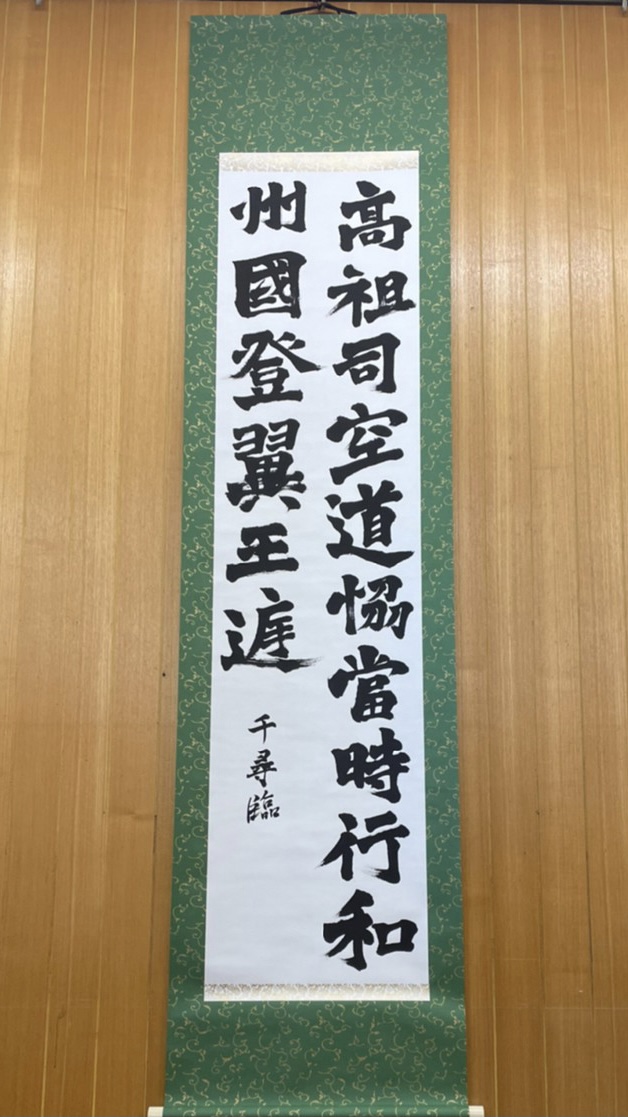 高祖司空道恊當時行和
州國登翼王庭
千尋臨